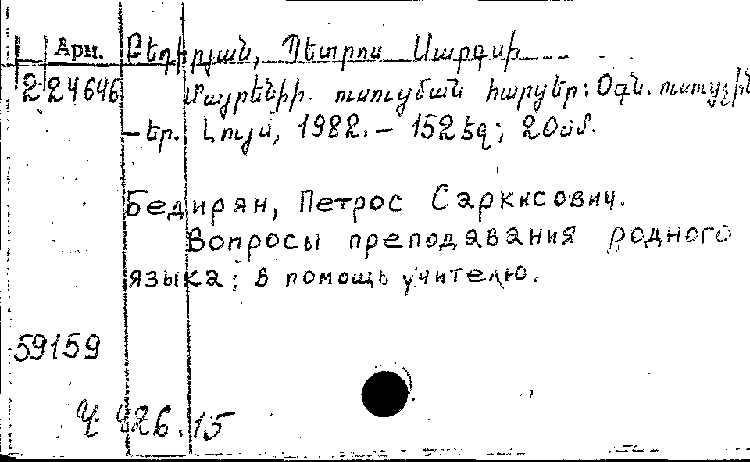 Арм. Բեդիրյան, Պետրոս Սարգսի
2 24646 Մայրենիի ուսուցման հարցեր: Օգն. ուսուցչին
– Եր. Լույս, 1982. – 152 էջ; 20սմ.
Бедирян, Петрос Саркисович.
Вопросы преподавания родного
языка: в помощь учителю.
59159
Ч 426.15